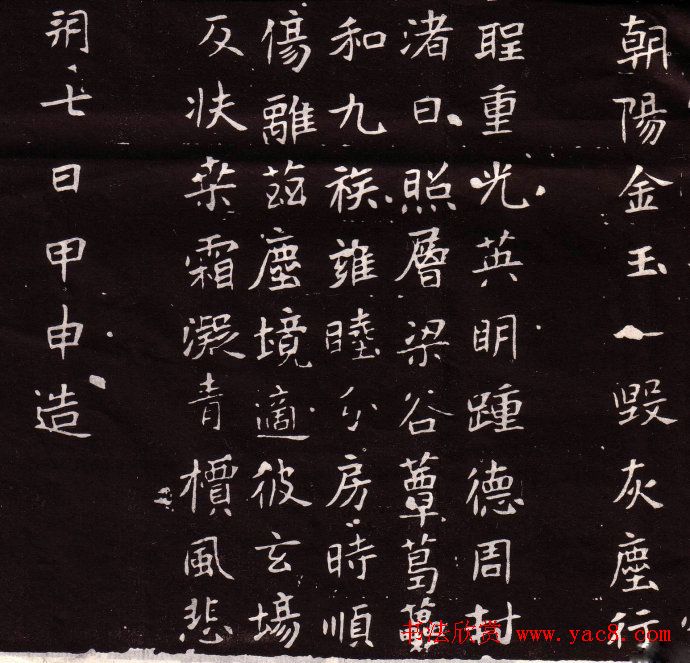 朝陽金玉一毀灰塵行
聖重光英明踵德周村
渚日照層梁谷蕈葛蘽
和九族雍睦分房時順
傷離茲塵境適彼玄場
反袂桒霜凝青檟風悲
朔七日甲申造
书法欣赏 www.yac8.com